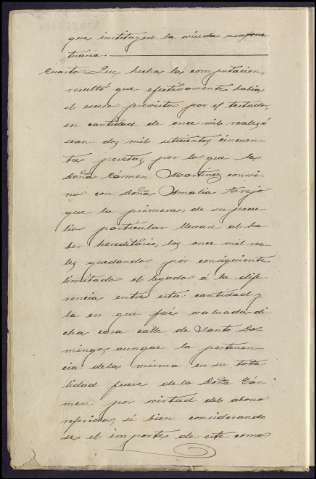 que instituyó la viuda usufruc
tuaria.
Cuarto Que hechas las computaciones
resultó que efectivamente había
el caso previsto por el testador,
en cantidad de once mil reales ó
sean dos mil setecientas cincuen
ta pesetas, por lo que la
Doña Carmen Martinez convi
no con Doña Amalia Trejo
que la primera de su pecu
lio particular llevara al ha
ber hereditario, los once mil rea
les quedando por consiguiente
limitado el legado á la dife
rencia entre esta cantidad y
la en que fué valuada di
cha casa calle de Santo Do
mingo, aunque la pertenen
cia de la misma en su tota
lidad fuera de la Doña Car
men por virtud del abono
referido, si bien considerando
se el importe de este como